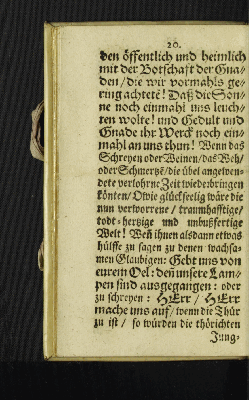 20.
den öffentlich und heimlich
mit der Botschaft der Gna-
den/ die wir vormahls ge-
ring achtete! Daß die Son-
ne noch einmahl uns leuch-
ten wolte! und Gedult und
Gnade ihr Werck noch ein-
mahl an uns thun! Wenn das
Schreyen oder Weinen/ das Weh/
oder Schmertzē/ die übel angewen-
dete verlohrne Zeit wiederbringen
könten/ O wie glückseelig wäre die
nun verworrene/ traumhafftige/
todt-hertzige und unbußfertige
Welt! Weñ ihnen alsdann etwas
hülffe zu sagen zu denen wachsa-
men Glaubigen: Gebt uns von
eurem Oel: deñ unsere Lam-
pen sind ausgegangen: oder
zu schreyen: HErr/ HErr
mache uns auf/ wenn die Thür
zu ist/ so würden die thörichten
Jung-